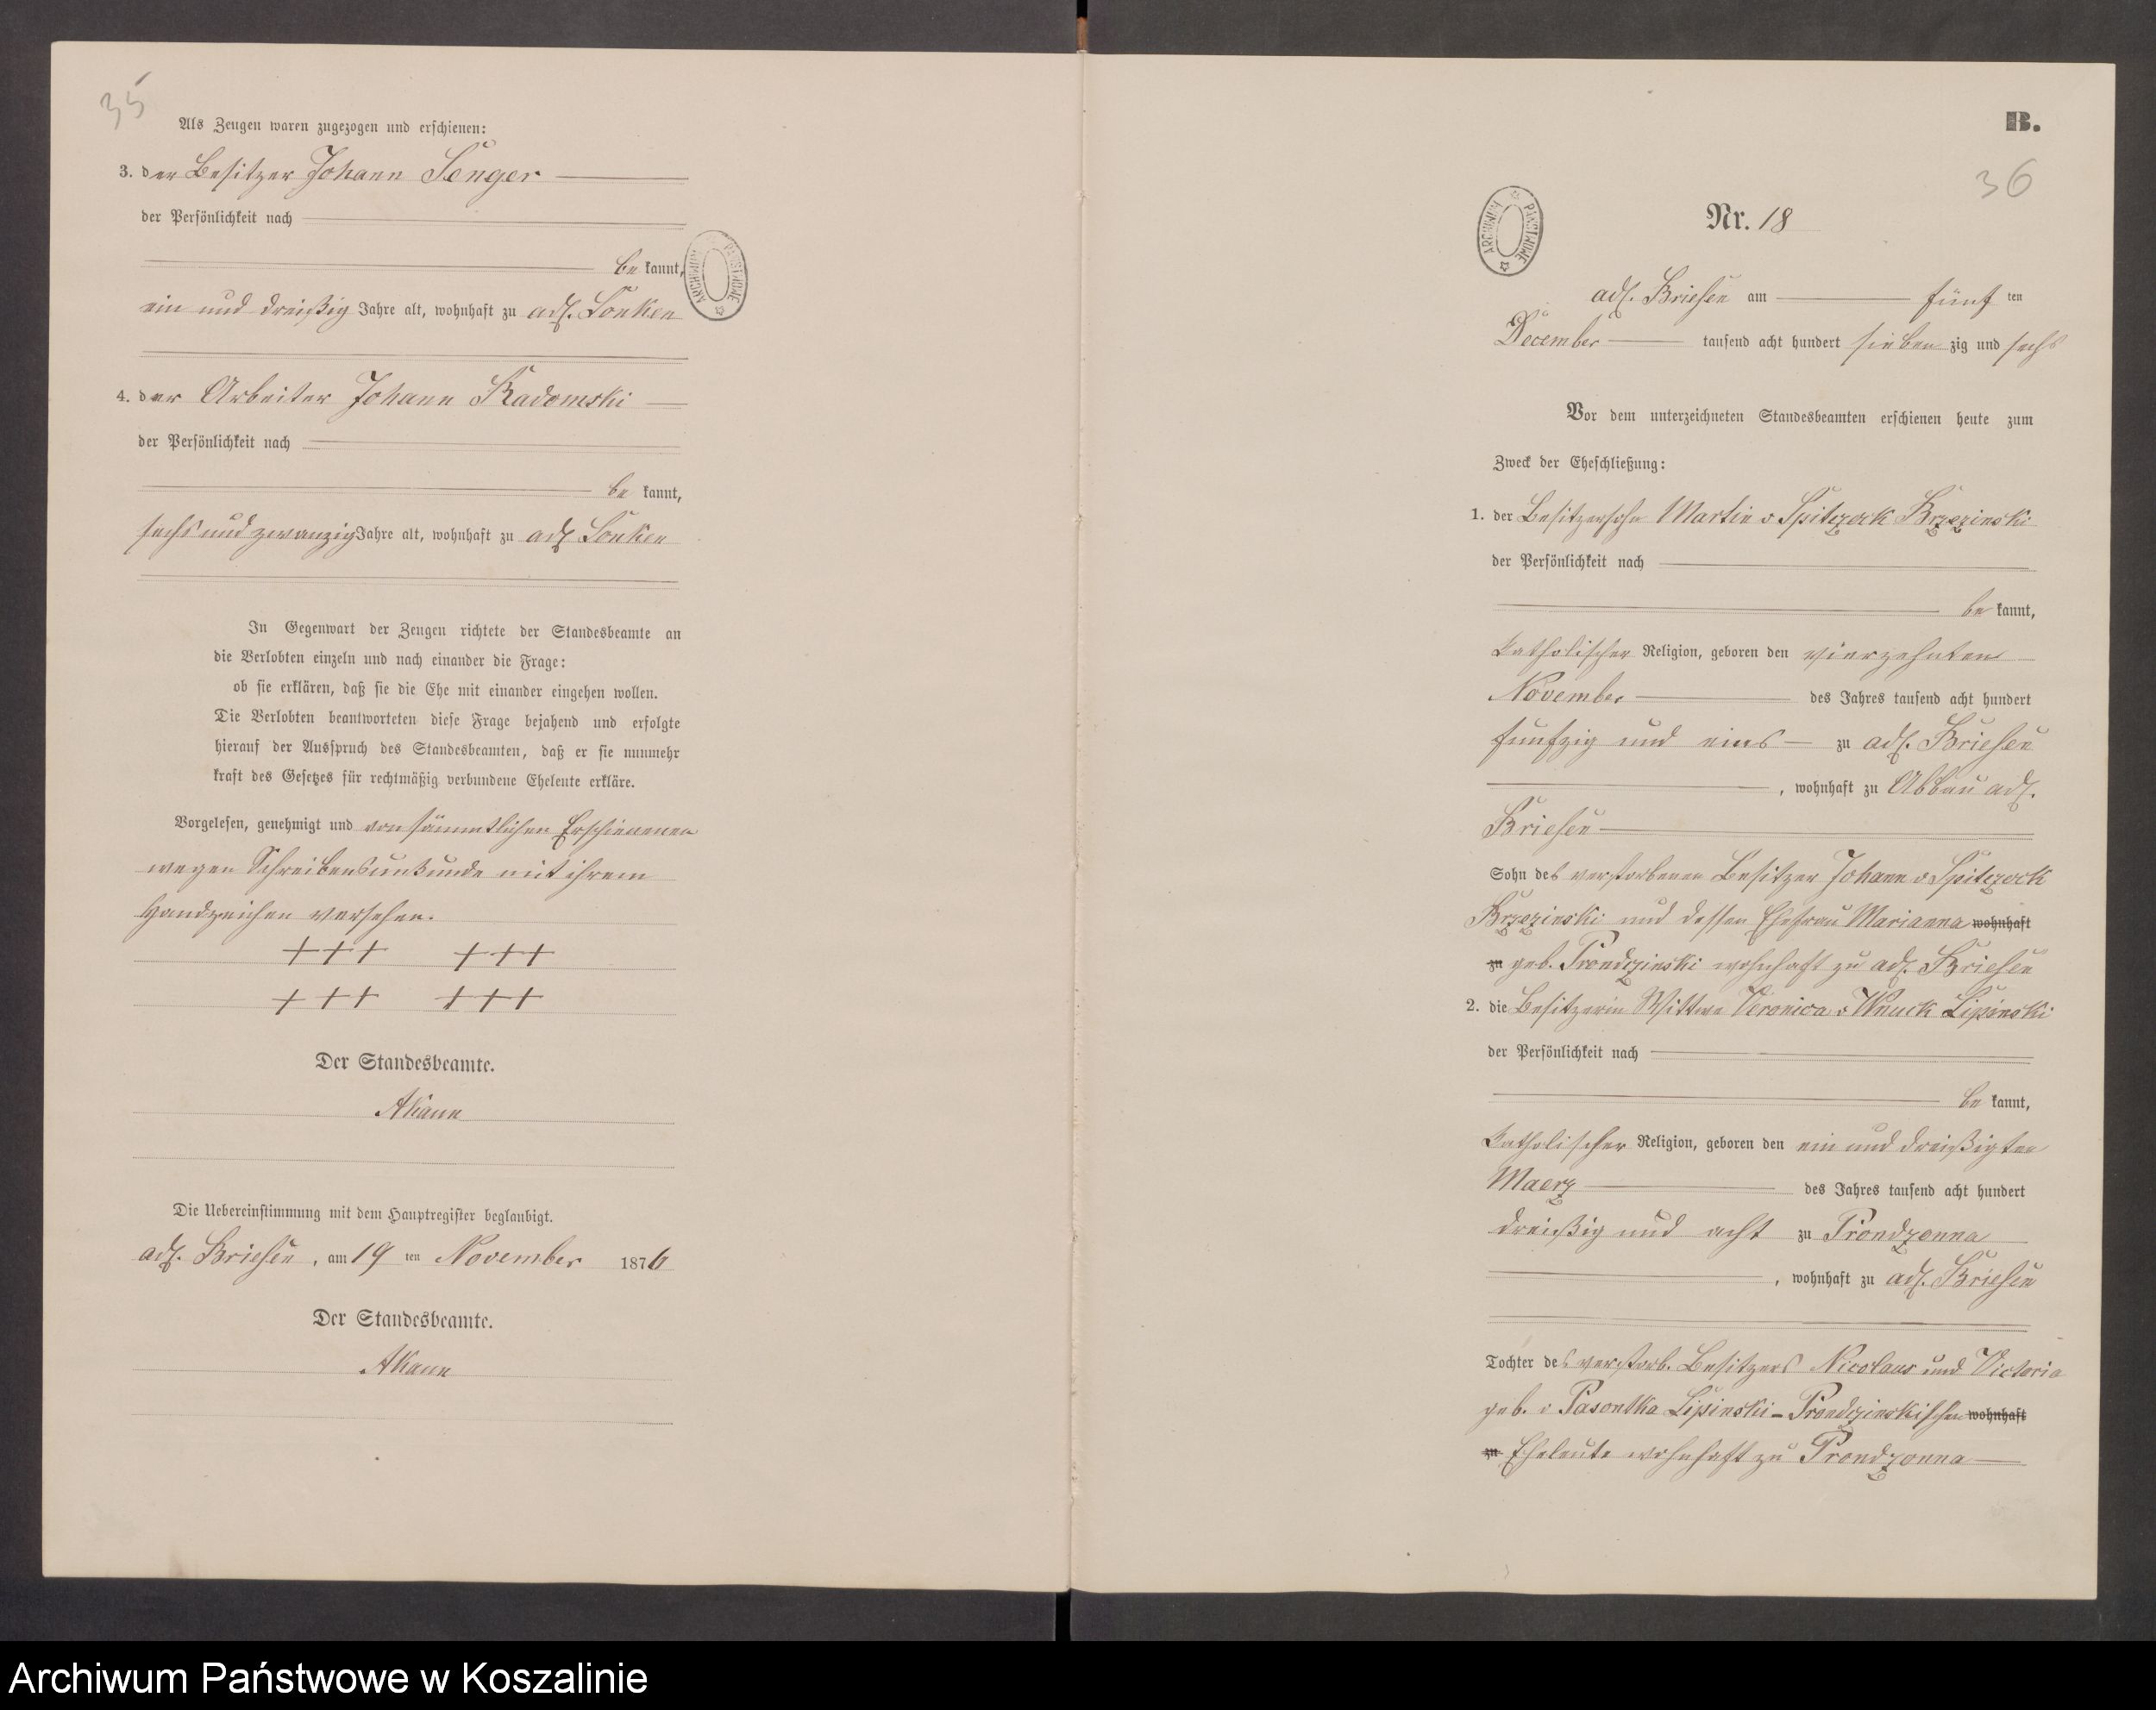 35
Als Zeugen waren zugezogen und erschienen:
3. der Besitzer Johann Senger
der Persönlichkeit nach
be kannt,
ein und dreißig Jahre alt, wohnhaft zu adl. Lonken
4. der Arbeiter Johann Radomski
der Persönlichkeit nach
be kannt,
sechs und zwanzig Jahre alt, wohnhaft zu adl. Lonken
In Gegenwart der Zeugen richtete der Standesbeamte an
die Verlobten einzeln und nach einander die Frage:
ob sie erklären, daß sie die Ehe mit einander eingehen wollen.
Die Verlobten beantworteten diese Frage bejahend und erfolgte
hierauf der Ausspruch des Standesbeamten, daß er sie nunmehr
kraft des Gesetzes für rechtmäßig verbundene Eheleute erkläre.
Vorgelesen, genehmigt und von sämmtlichen Erschienenen
wegen Schreibensunkunde mit ihrem
Handzeichen versehen.
+++ +++
+++ +++
Der Standesbeamte.
A Kann
Die Uebereinstimmung mit dem Hauptregister beglaubigt.
adl. Briesen, am 19 ten November 1876
Der Standesbeamte.
A Kann
ARCHIWUM PAŃSTWOWE
B.
36
ARCHIWUM PAŃSTWOWE
Nr. 18
adl. Briesen am fünf ten
December tausend acht hundert sieben zig und sechs
Vor dem unterzeichneten Standesbeamten erschienen heute zum
Zweck der Eheschließung:
1. der Besitzersohn Martin v Spiczock Brzezinski
der Persönlichkeit nach
be kannt,
katholischer Religion, geboren den vierzehnten
November des Jahres tausend acht hundert
funfzig und eins zu adl. Briesen
, wohnhaft zu Abbau adl.
Briesen
Sohn des verstorbenen Besitzer Johann v Spiczock
Brzezinski und dessen Ehefrau Marianna wohnhaft
zu geb. Prondzinski wohnhaft zu adl. Briesen
2. die Besitzerin Wittwe Veronica v Wnuck Lipinski
der Persönlichkeit nach
be kannt,
katholischer Religion, geboren den ein und dreißigten
Maerz des Jahres tausend acht hundert
dreißig und acht zu Prondzonna
, wohnhaft zu adl. Briesen
Tochter des verstorb. Besitzers Nicolaus und Victoria
geb. v Lipinski - Prondzinskischen wohnhaft
zu Eheleute wohnhaft zu Prondzonna
Archiwum Państwowe w Koszalinie